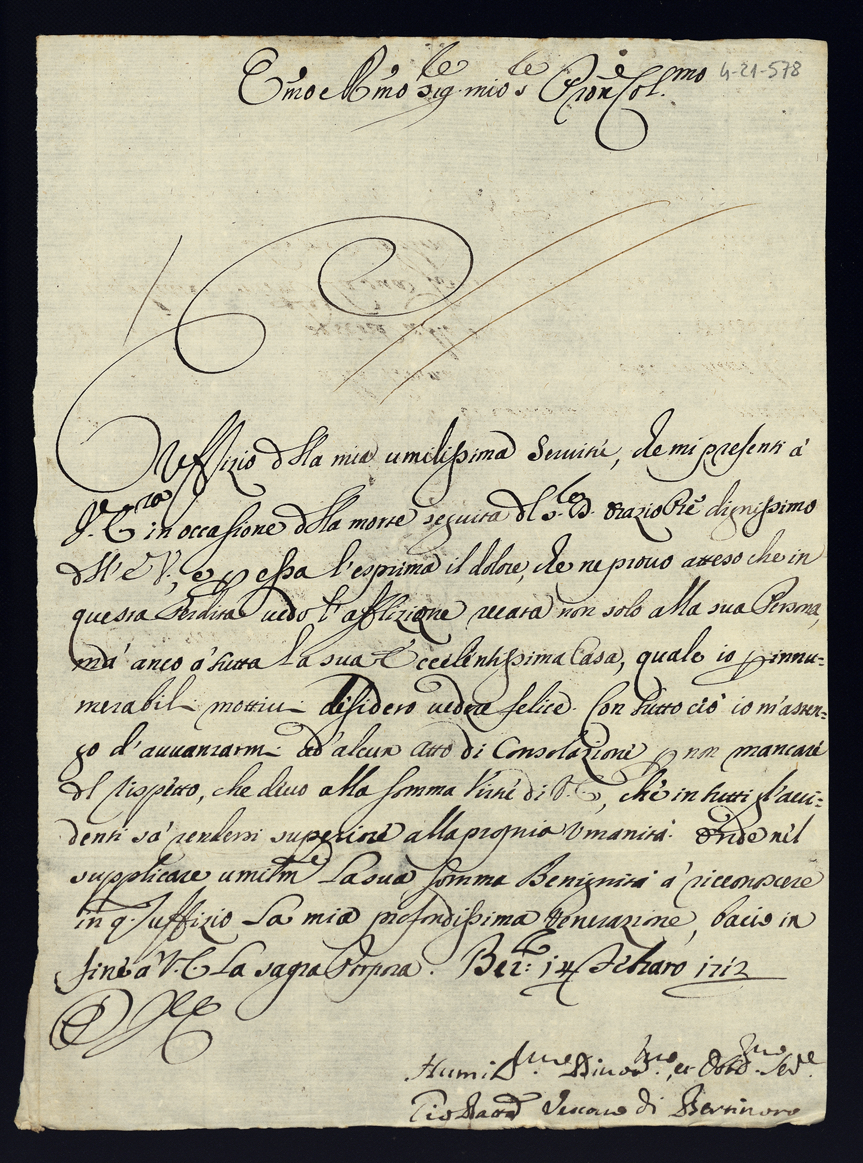 Em̃o e Rm̃o Sig.re mio Sig.re Pron̄e Col.mo 4-21-578
Uffizio della mia umilissima Servitù, che mi presenti à
V. Em.za in occasione della morte seguita del S.r D. Orazio Prē dignissimo
dell' E. V., e p essa l'esprima il dolore, che ne provo atteso che in
questa Perdita vedo l'afflizione recata non solo alla sua Persona,
mà anco à tutta La sua Eccelentissima Casa, quale io p innu-
merabili mottivi desidero vedere felice. Con tutto ciò io m'asten-
go d'avvanzarmi ad'alcun atto di Consolazione p non mancare
del rispetto, che devo alla somma Virtù di V. E., che in tutti gl'acci-
denti sà rendersi superiore alla propria Umanità. Onde nel
supplicare umilm.e La sua somma Benignità à riconoscere
in q.o uffizio La mia profondissima Venerazione, bacio in
fine à V. E. La sagra Porpora. Ber.o 14 Febraro 1712
D. V. E.
Humil.mo Divot.mo, et Obb.mo Ser.e
Gio Batta Vescovo di Bertinoro